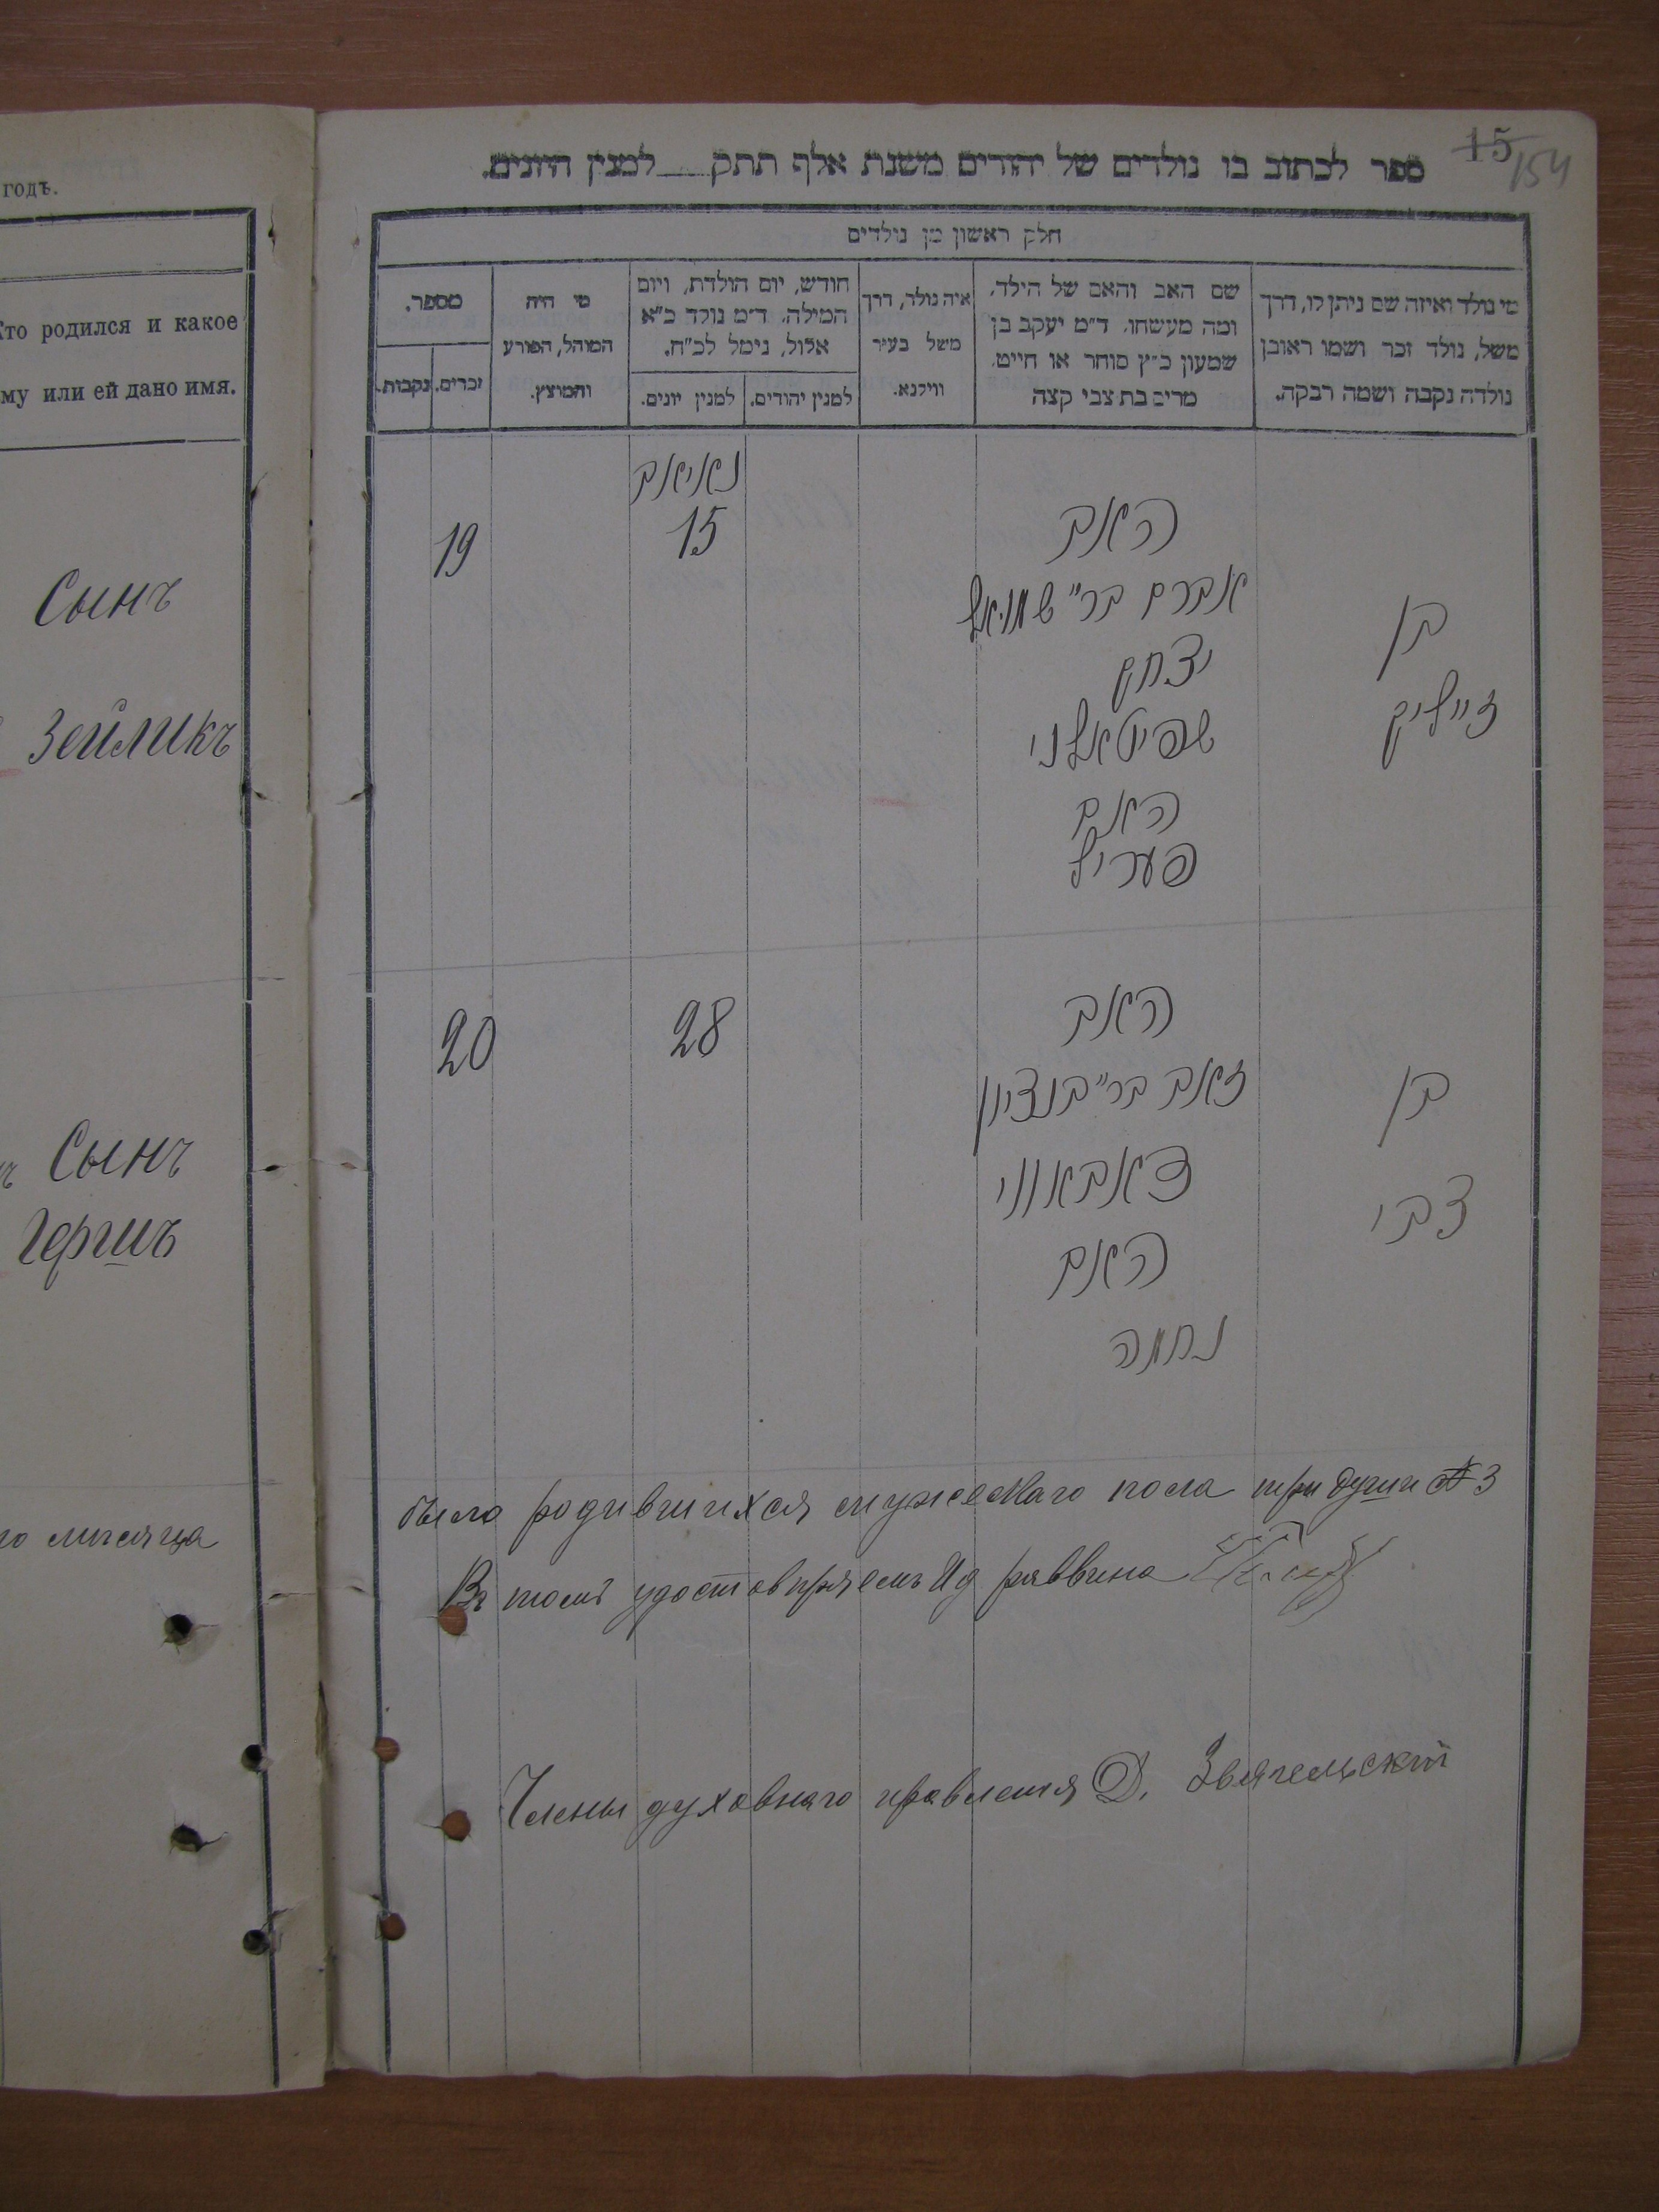 годъ.
Кто родился и какое
ему или ей дано имя.
Сынъ
Зейликъ
Сынъ
Гершъ
го мѣсяца
15
154
ספר לכתוב בו נולדים של יהודים משנת אלף תתק___למנין היונים.
חלק ראשון מן נולדים
מי נולד ואיזה שם ניתן לו, דרך
משל, נולד זכר ושמו ראובן
נולדה נקבה ושמה רבקה.
שם האב והאם של הילד,
ומה מעשהו. ד״מ יעקב בן
שמעון כ״ץ סוחר או חייט.
מרים בת צבי קצה
איה נולד, דרך
משל בעיר
ווילנא.
חודש, יום הולדת, ויום
המילה. ד״מ נולד כ״א
אלול, נימל לכ״ח.
למנין יהודים.
למנין יונים.
מי היה
המוהל, הפורע
והמוצץ.
מספר.
זכרים.
נקבות.
19
15
האב
אברם בר״ שמואל
יצחק
שפיטאלני
האם
פעריל
בן
זייליק
20
28
האב
זאב בר״ בנציון
האם
נחמה
בן
צבי
было родившихся мужескаго пола три души № 3
Въ томъ удостовѣряемъ Ид раввина
Члены духовнаго правленія Д. Звягельскій